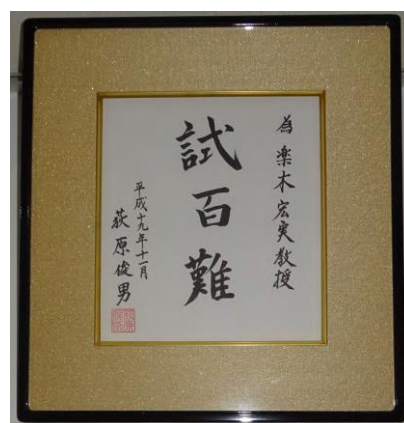 為 楽木宏実教授
試百難
平成十九年十一月
荻原俊男